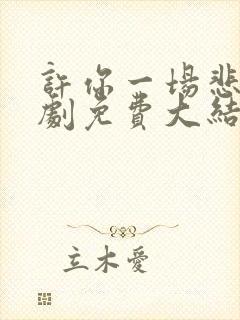 許你一場悲
劇免費大結
立木愛